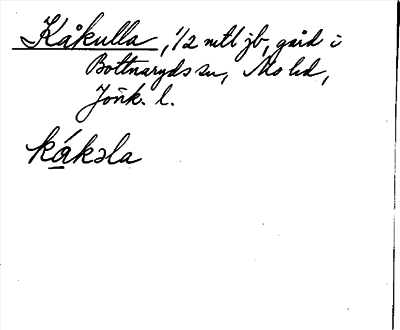 Kåkulla, 1/2 mtl jb, gård i
Bottnaryds sn, Mo hd,
Jönk. l.
kǻkəla